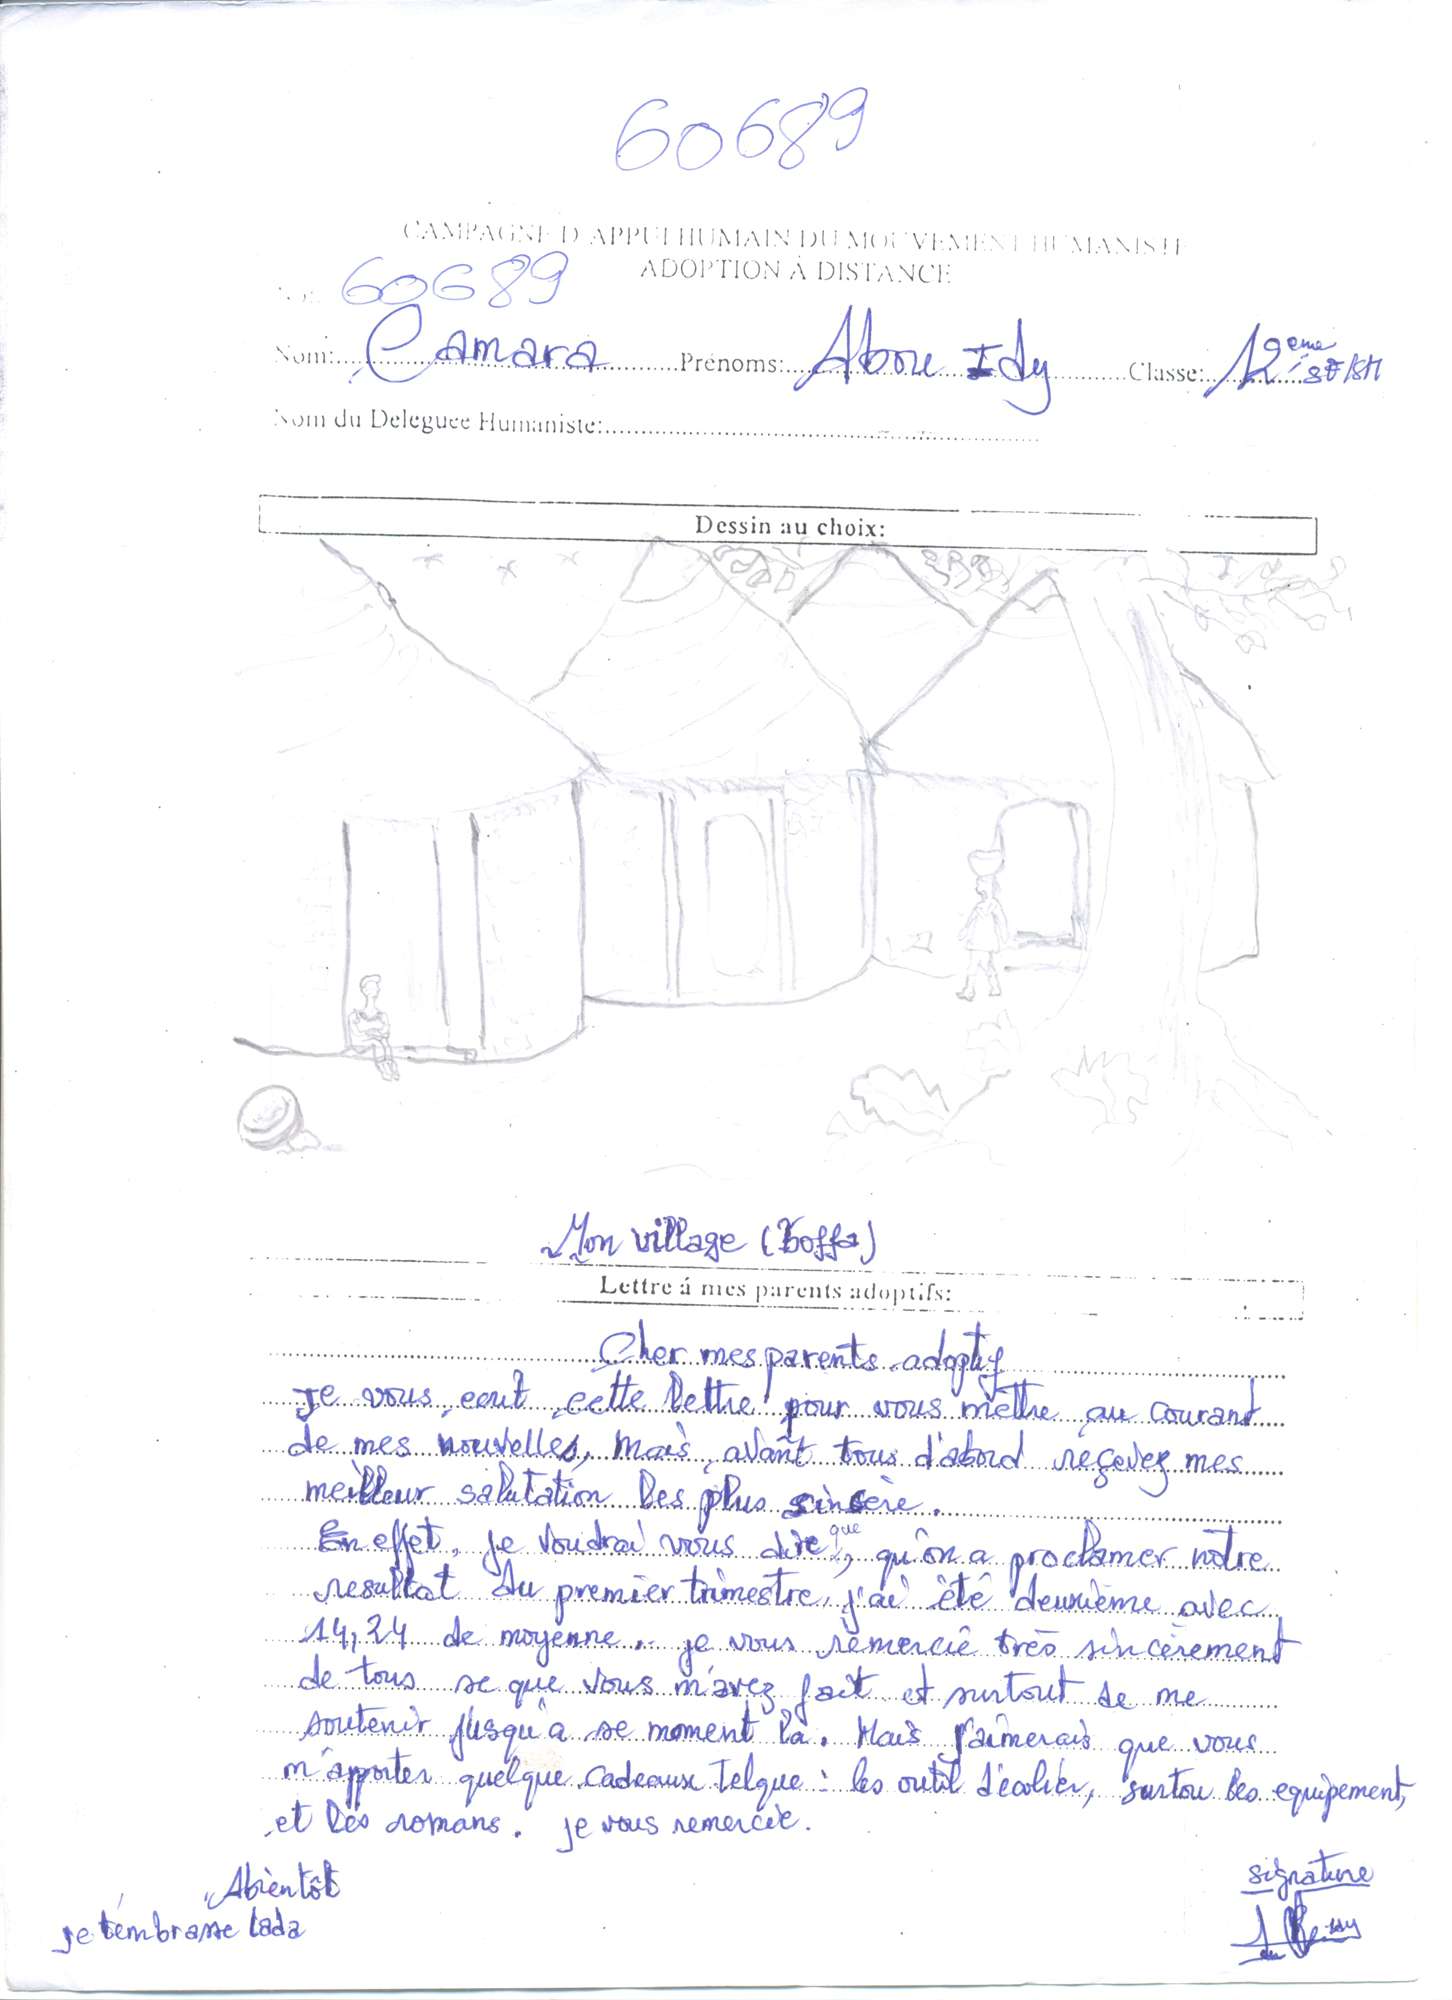 60689
CAMPAGNE D'APPUI HUMAIN DU MOUVEMENT HUMANISTE
ADOPTION À DISTANCE
60689
Nom: Camara Prénoms: Abou Idy Classe: 12ème SE/SM
Nom du Deleguee Humaniste:
Dessin au choix:
Mon village (Boffa)
Lettre á mes parents adoptifs:
Cher mes parents adoptif
Je vous ecrit cette lettre pour vous mettre au courant
de mes nouvelles, mais avant tous d'abord reçevez mes
meilleur salutation les plus sincère.
En effet, je voudrai vous dire que, qu'on a proclamer notre
resultat du premier trimestre, j'ai été deuxième avec
14,24 de moyenne. je vous remercie très sincèrement
de tous se que vous m'avez fait et surtout de me
soutenir jusqu'à se moment là. Mais j'aimerais que vous
m'apporter quelque cadeaux telque : les outil d'écolier, surtou les equipement,
et les romans. je vous remercie.
Abientôt
je t'embrasse lada
signature